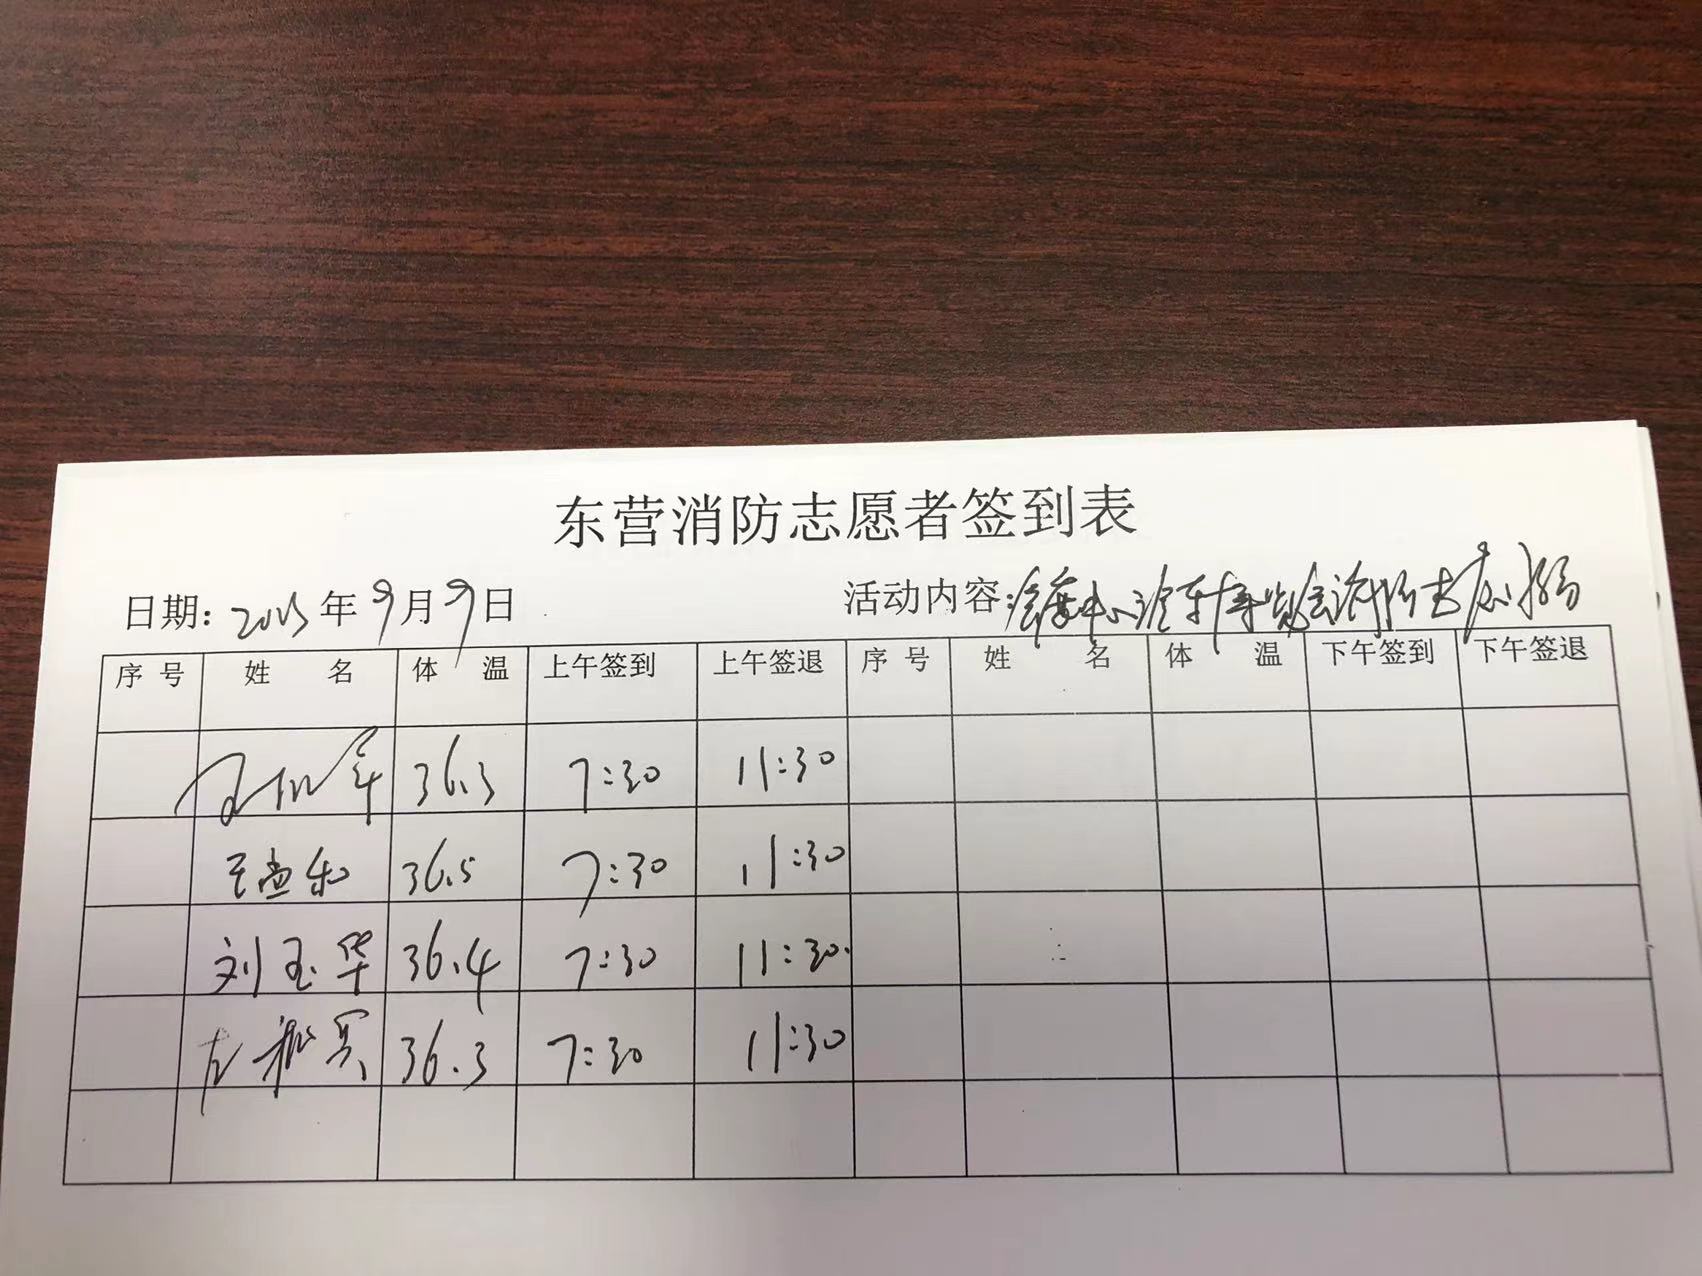 东营消防志愿者签到表
日期: 2023年9月9日 活动内容: 会展中心汽车博览会消防志愿
序号 姓名 体温 上午签到 上午签退 序号 姓名 体温 下午签到 下午签退
36.3 7:30 11:30
王 36.5 7:30 11:30
刘玉华 36.4 7:30 11:30.
左 36.3 7:30 11:30